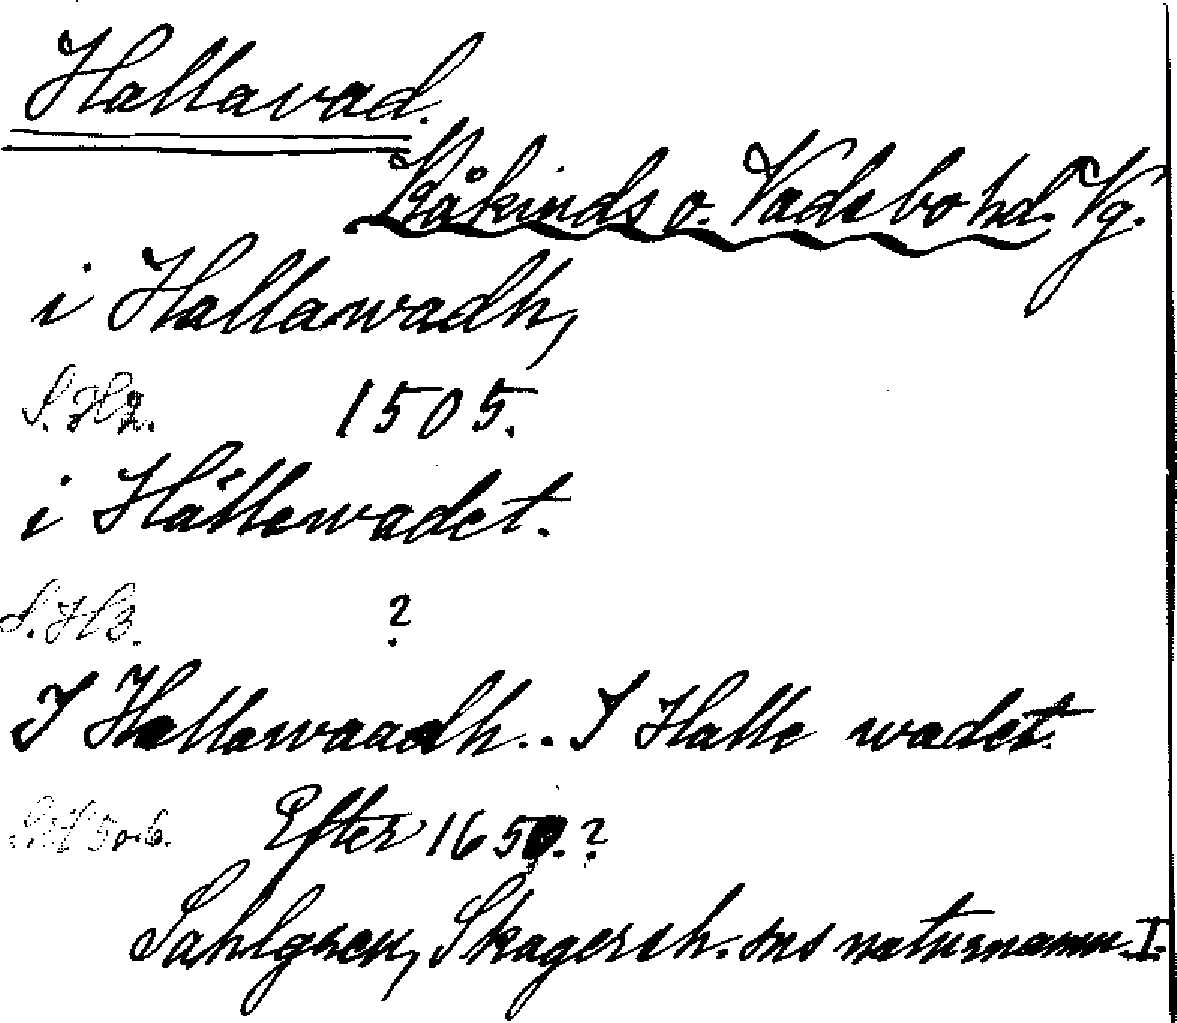 Hallavad.
Kåkinds o. Vadsbo hd. Vg.
i Hallawadh,
S. H 2. 1505.
i Hållewadet.
S. H 3. ?
I Hallawaadh.. I Halle wadet.
S. H 5 o. 6. Efter 1650.?
Sahlgren, Skagersh. sns naturnamn I.